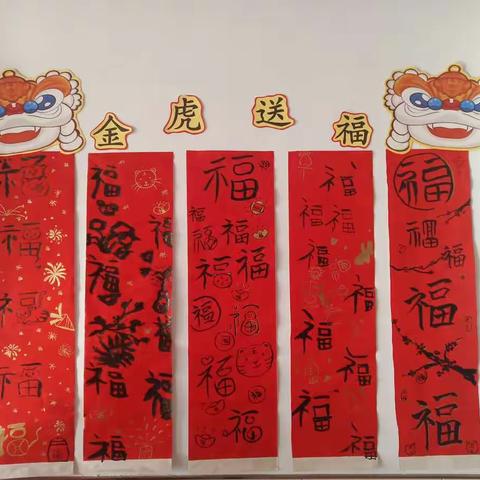 金虎送福
福
福
福
福
福
福
福
福
福
福
福
福
福
福 福
福 福
福 福
福
福
福
福 福
福
福
福
福
福
福
福
福
福
福
福